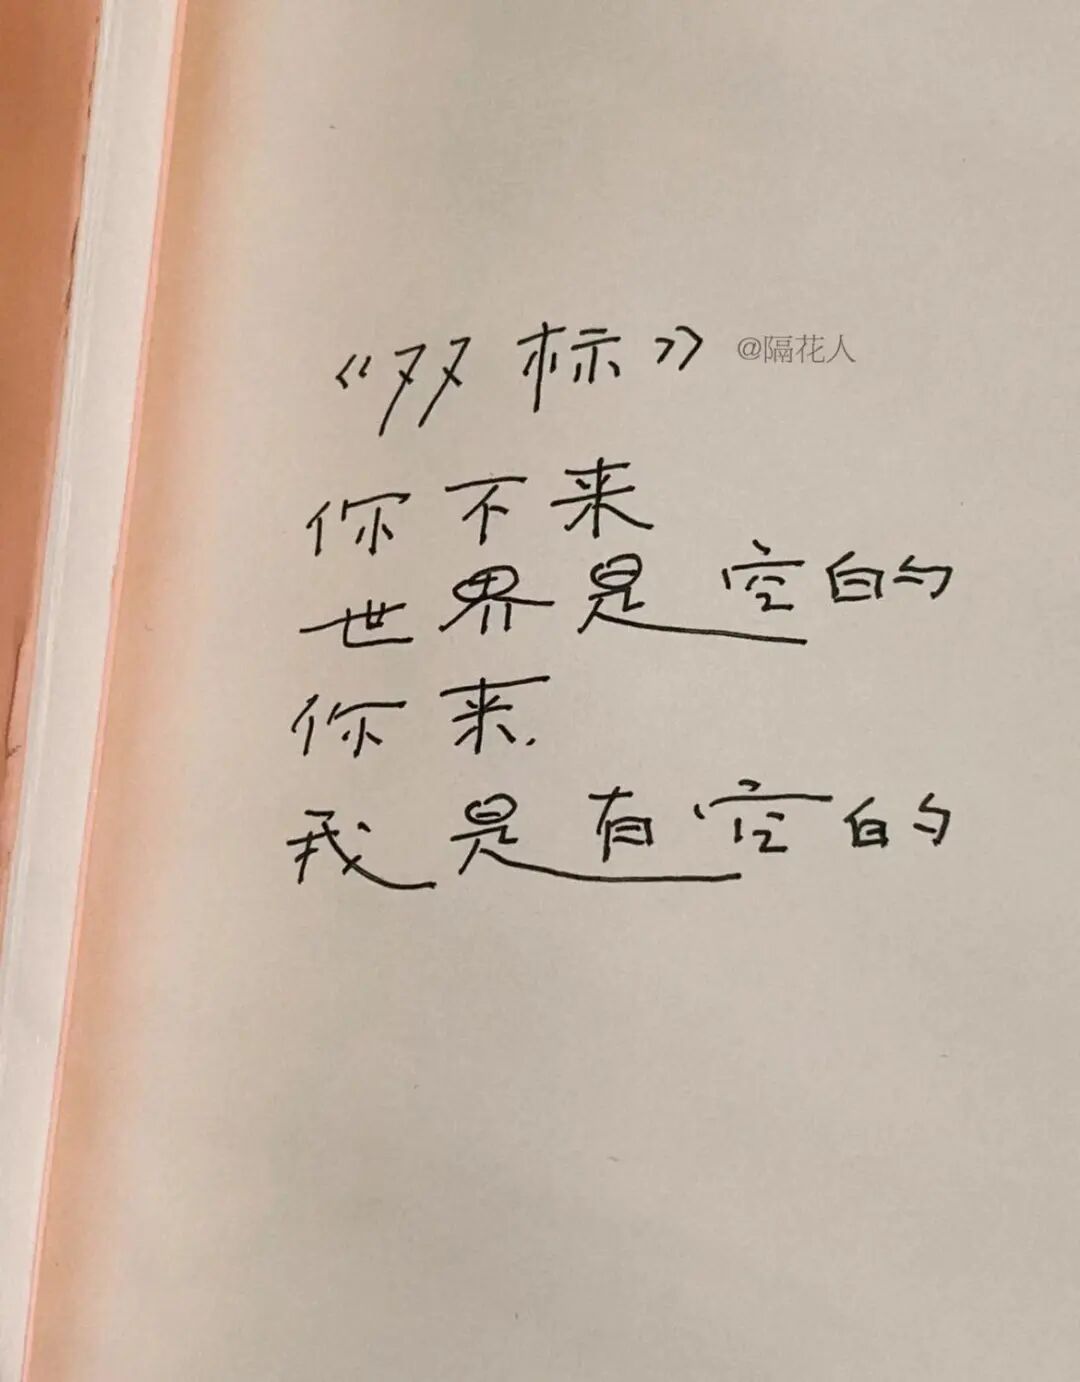 《双标》 @隔花人
你不来
世界是空的
你来.
我是有空的